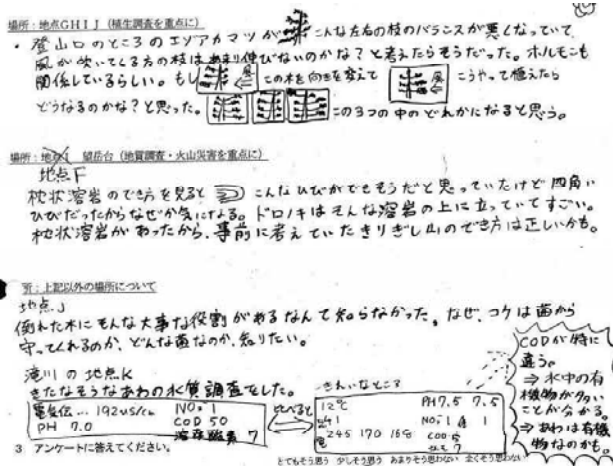 場所：地点GHIJ（植生調査を重点に）
・登山口のところのエゾアカマツが こんな左右の枝のバランスが悪くなっていて
風が吹いてくる方の枝はあまり伸びないのかな？と考えたらそうだった。ホルモンも
関係しているらしい。もし この木を向きを変えて 風 こうやって植えたら
どうなるのかな？と思った。 この3つの中のどれかになると思う。
場所：地点I 望岳台（地質調査・火山災害を重点に）
地点F
枕状溶岩のでき方を見ると こんなひびができそうだと思っていたけど四角い
ひびだったからなぜか気になる。ドロノキはそんな溶岩の上に立っていてすごい。
枕状溶岩があったから、事前に考えていたきりぎし山のでき方は正しいかも。
所：上記以外の場所について
地点J
倒れた木にそんな大事な役割があるなんて知らなかった。なぜ、コケは菌から
守ってくれるのか、どんな菌なのか、知りたい。
滝川の地点K
きたなそうなあわの水質調査をした。
電気伝… 192us/cm NO₂ 1
PH 7.0 COD 50
7
比べると
きれいなところ
12℃ PH7.5 7.5
245 170 168
CODが特に
違う。
⇒水中の有
機物が多い
ことが分かる。
⇒あわは有機
物なのかも。
3 アンケートに答えてください。
とてもそう思う 少しそう思う あまりそう思わない 全くそう思わない